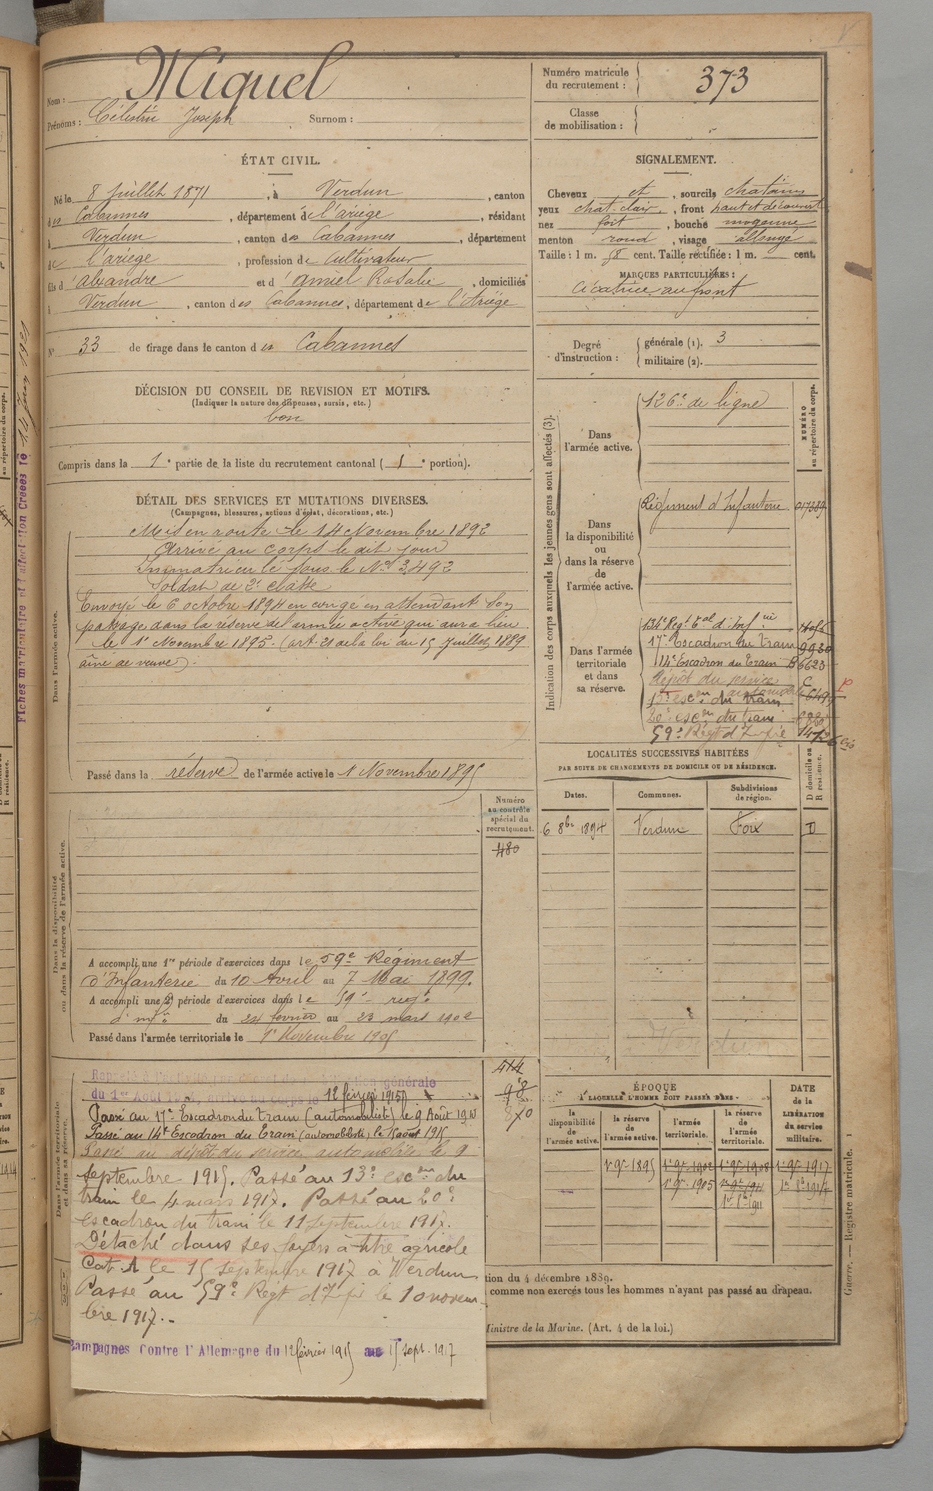 Nom : Miquel
Prénoms : Célestin Joseph Surnom :
Numéro matricule du recrutement : 373
Classe de mobilisation :
ÉTAT CIVIL.
Né le 8 Juillet 1871, à Verdun, canton
des Cabannes, département de l'ariège, résidant
à Verdun, canton des Cabannes, département
de l'ariège, profession de Cultivateur
fils d'alexandre et d'amiel Rosalie, domiciliés
à Verdun, canton des Cabannes, département de l'Ariège
N° 33 de tirage dans le canton des Cabannes
SIGNALEMENT.
Cheveux et, sourcils chatains
yeux chat. clair, front haut et découvert
nez fort, bouche moyenne
menton rond, visage allongé
Taille : 1 m. cent. Taille rectifiée : 1 m. cent.
MARQUES PARTICULIÈRES :
Cicatrice au front
Degré d'instruction : générale (1). 3
militaire (2).
DÉCISION DU CONSEIL DE REVISION ET MOTIFS.
(Indiquer la nature des dispenses, sursis, etc.)
bon
Compris dans la 1e partie de la liste du recrutement cantonal (1e portion).
DÉTAIL DES SERVICES ET MUTATIONS DIVERSES.
(Campagnes, blessures, actions d'éclat, décorations, etc.)
Dans l'armée active.
Mis en route le 14 Novembre 1892
Arrivé au corps le dit jour
Immatriculé sous le No 3492
Soldat de 2e classe
Envoyé le 6 octobre 1894 en congé en attendant son
passage dans la réserve de l'armée active qui aura lieu
le 1er Novembre 1895. (art. 21 de la loi du 15 Juillet 1889
aîné de veuve).
Passé dans la réserve de l'armée active le 1 Novembre 1895
Indication des corps auxquels les jeunes gens sont affectés (3).
NUMÉRO au répertoire du corps.
Dans l'armée active.
126e de ligne
Dans la disponibilité ou dans la réserve de l'armée active.
Régiment d'Infanterie
Dans l'armée territoriale et dans sa réserve.
17e Escadron du train 9930
14e Escadron du Train B 6623
dépôt du service automobile
13e escon du train
20e escon du train
59e Régt d'Infie
LOCALITÉS SUCCESSIVES HABITÉES
PAR SUITE DE CHANGEMENTS DE DOMICILE OU DE RÉSIDENCE.
Dates. Communes. Subdivisions de région. D domicile ou R résidence.
6 8bre 1894 Verdun Foix D
Dans la disponibilité ou dans la réserve de l'armée active.
Numéro au contrôle spécial du recrutement.
480
A accompli une 1re période d'exercices dans le 59e Régiment
d'Infanterie du 10 Avril au 7 Mai 1899.
A accompli une 2e période d'exercices dans le 59e régt
d'infie du 24 février au 23 mars 1902
Passé dans l'armée territoriale le 1er Novembre 1905
Dans l'armée territoriale et dans sa réserve.
414
12 février 1915
Passé au 17e Escadron du train (automobiliste) le 9 Août 1915
Passé au 14e Escadron du Train (automobiliste) le août 1915
Passé au dépôt du service automobile le 9
septembre 1915. Passé au 13e escon du
train le 4 mars 1917. Passé au 20e
escadron du train le 11 septembre 1917.
Détaché dans ses foyers à titre agricole
Cat. A le 15 septembre 1917 à Verdun
Passé au 59e Régt d'Infie le 10 novem-
bre 1917.
Campagnes Contre l'Allemagne du 12 février 1915 au 15 sept. 1917
ÉPOQUE
À LAQUELLE L'HOMME DOIT PASSER DANS :
la disponibilité de l'armée active.
la réserve de l'armée active.
l'armée territoriale.
la réserve de l'armée territoriale.
DATE de la LIBÉRATION du service militaire.
1er 9bre 1895 1er 9bre 1902 1er 9bre 1908 1er 9bre 1917
1er 9bre 1905
tion du 4 décembre 1889.
comme non exercés tous les hommes n'ayant pas passé au drapeau.
Ministre de la Marine. (Art. 4 de la loi.)
Guerre. — Registre matricule. 1